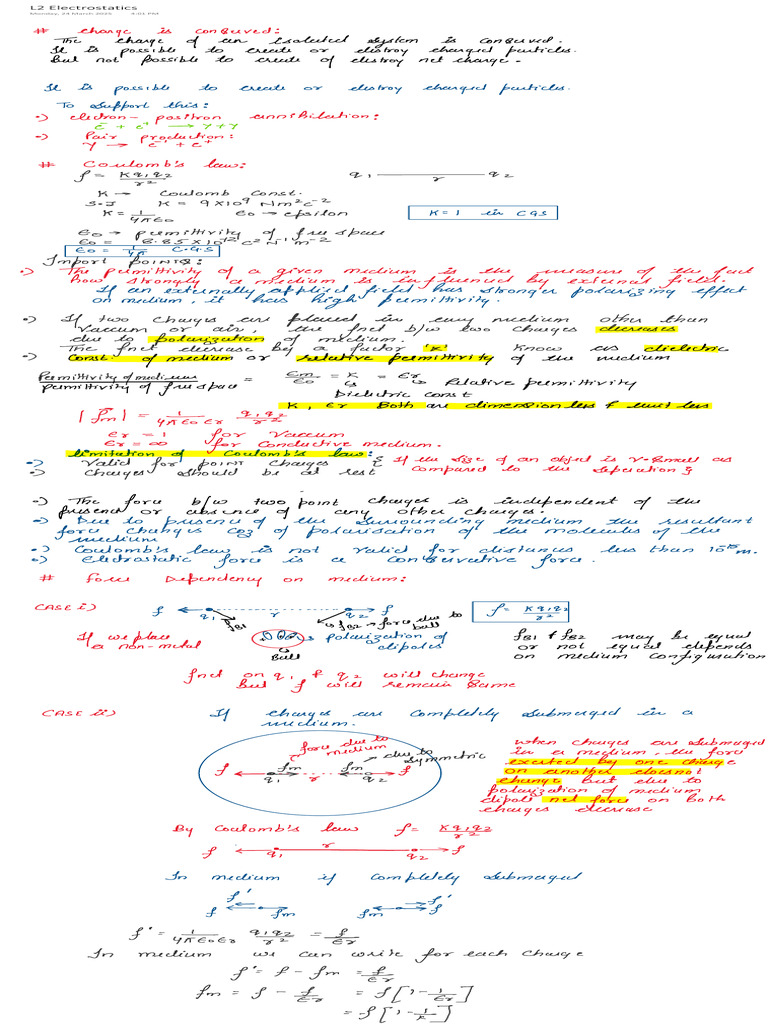 L2 Electrostatics
Monday, 24 March 2025 4:01 PM
# charge is conserved:
The charge of an isolated system is conserved.
It is possible to create or destroy charged particles.
But not possible to create of destroy net charge.
It is possible to create or destroy charged particles.
To support this:
•) electron-positron annihilation:
e⁻ + e⁺ → γ+γ
•) Pair production:
γ → e⁻ + e⁺
# Coulomb's law:
f = Kq₁q₂/r² q₁ r q₂
K → Coulomb Const.
S.I K = 9×10⁹ Nm²c⁻²
K = 1/4πε₀ ε₀ → epsilon K=1 in CGS
ε₀ → permittivity of free space
ε₀ = 8.85×10⁻¹² c²N⁻¹m⁻²
ε₀ = 1/4π C.G.S
Import points:
•) The permittivity of a given medium is the measure of the fact
how strongly a medium is influenced by external field.
If an externally applied field has stronger polarizing effect
on medium, it has high permittivity.
•) If two charges are placed in any medium other than
vaccum or air, the fnet b/w two charges decreases
due to polarization of medium.
The fnet decrease by a factor 'K' know as dielectric
•) Const. of medium or relative permittivity of the medium
Permittivity of medium/permittivity of free space = εm/ε₀ = K = εr → Relative permittivity
Dielectric const
K, εr Both are dimensionless & unit less
|f⃗m| = 1/4πε₀εr q₁q₂/r²
εr = 1 for Vaccum
εr = ∞ for Conductive medium.
limitation of Coulomb's law:
•) Valid for point charges { If the size of an object is v.small as
•) Charges should be at rest compared to the seperation}
•) The force b/w two point charges is independent of the
presence or absence of any other charges.
•) Due to presence of the surrounding medium the resultant
force changes coz of polarisation of the molecules of the
medium
•) Coulomb's law is not valid for distances less than 10⁻¹⁵m.
•) Electrostatic force is a conservative force.
# force Dependency on medium:
CASE i) f q₁ r q₂ f f = Kq₁q₂/r²
fB1 fB2 → force due to ball
If we place polarization of fB1 & fB2 may be equal
a non-metal dipoles or not equal depends
Ball on medium configuration
fnet on q₁ & q₂ will change
But f will remain same
CASE ii) If charges are completely submerged in a
medium.
force due to medium
due to symmetric
f fm fm f
q₁ r q₂
when charges are submerged
in a medium, the force
exerted by one charge
on another doesnot
change but due to
polarization of medium
dipole net force on both
charges decrease
By Coulomb's law f = Kq₁q₂/r²
f q₁ r q₂ f
In medium if completely submerged
f' f'
f fm fm f
f' = 1/4πε₀εr q₁q₂/r² = f/εr
In medium we can write for each charge
f' = f - fm = f/εr
fm = f - f/εr = f[1-1/εr]
= f[1-1/K]